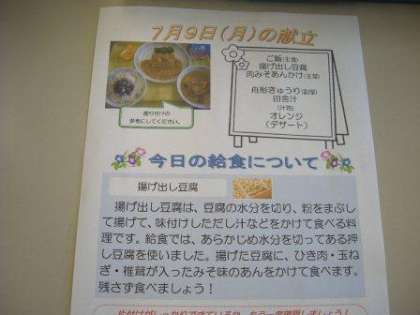 7月9日(月)の献立
ご飯(主食)
揚げ出し豆腐
肉みそあんかけ(主菜)
舟形きゅうり(副菜)
田舎汁
(汁物)
オレンジ
(デザート)
盛り付けの
参考にしてください。
今日の給食について
揚げ出し豆腐
揚げ出し豆腐は、豆腐の水分を切り、粉をまぶし
て揚げて、味付けしただし汁などをかけて食べる料
理です。給食では、あらかじめ水分を切ってある押
し豆腐を使いました。揚げた豆腐に、ひき肉・玉ね
ぎ・椎茸が入ったみそ味のあんをかけて食べます。
残さず食べましょう!